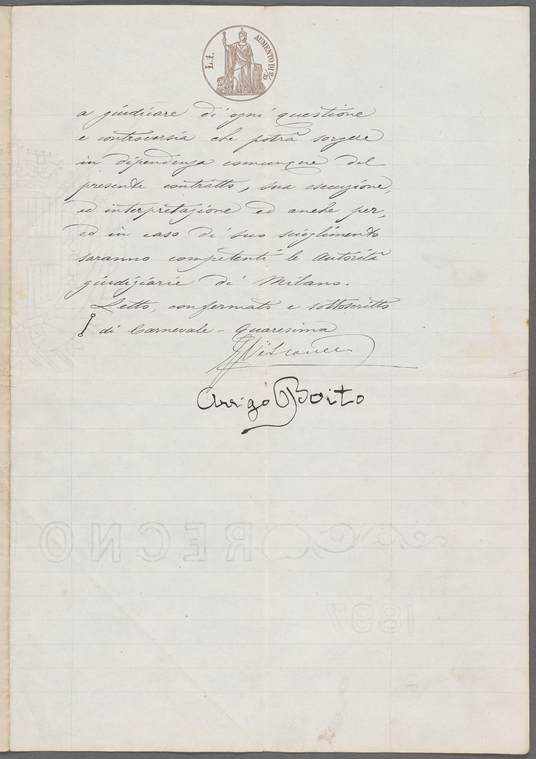 L.1. AUMENTO DI 2/10
a giudicare di ogni questione
e controversia che potrà sorgere
in dipendenza comunque del
presente contratto, sua esecuzione,
ed interpretazione ed anche per,
ed in caso di suo scioglimento
saranno competenti le Autorità
giudiziarie di Milano.
Letto, confermato e sottoscritto
di Carnevale - Quaresima
Visconti
Arrigo Boito
REGNO
1897